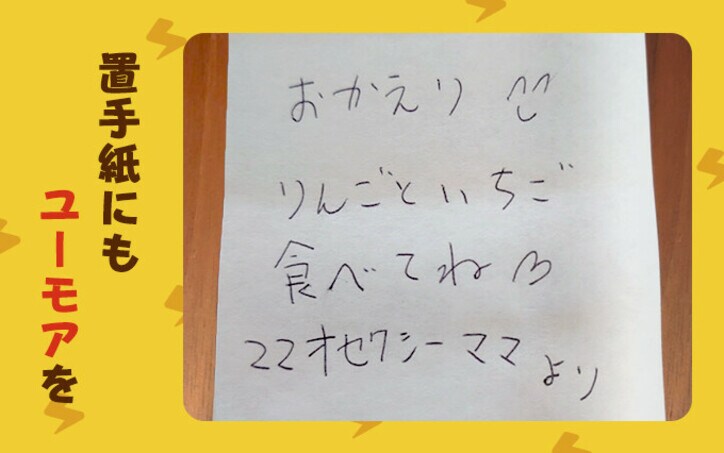 置手紙にも
ユーモアを
おかえり
りんごといちご
食べてね
22才セクシーママ
より